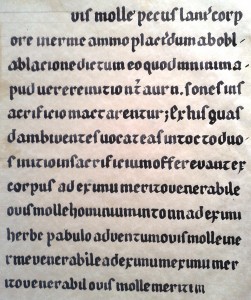 ovis molle pecus lani corp
ore inerme ammo placidum ab obl
ablacione dictum eo quod mnima
pud uerere initio nr aurn. sones ins
acrificio mactarentur; Ex his quas
dam biventes uocateas intoctoduo
s initio in sacrificium offerevant ex
corpus ad eximu merito venerabile
ovis molle hominum intonn ad eximu
herbe pabulo adventum ovis molle ine
rme venerabile ad eximum eximu mer
ito venerabil ovis molle meritim